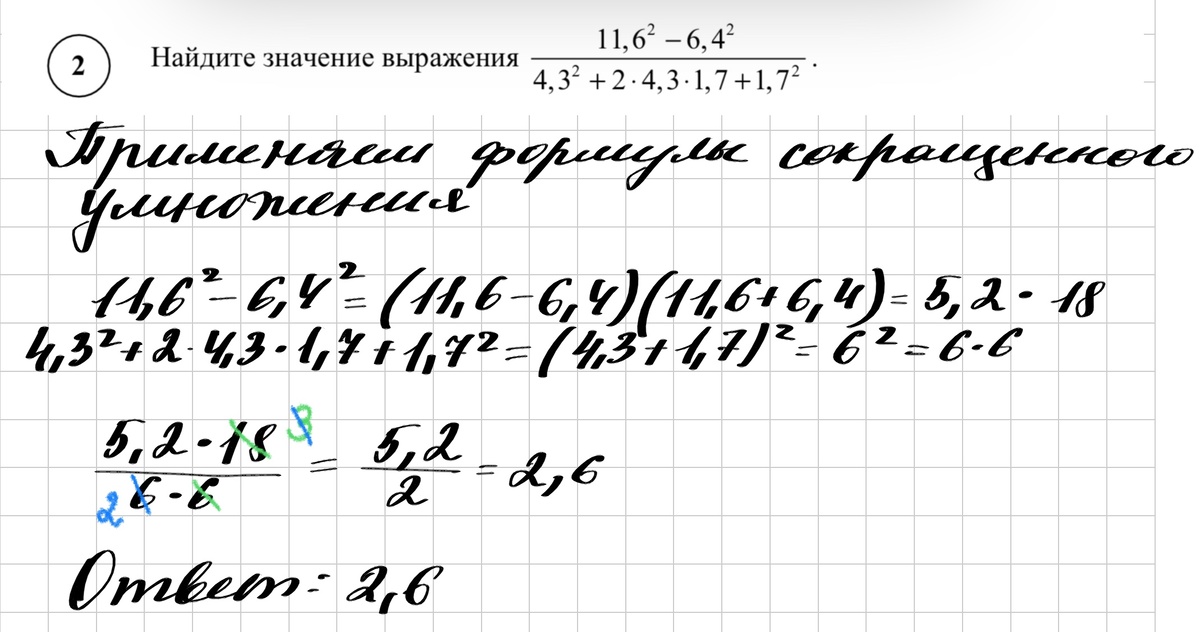 2 Найдите значение выражения (11,6² − 6,4²) / (4,3² + 2 · 4,3 · 1,7 + 1,7²).
Применяем формулы сокращенного
умножения
11,6² − 6,4² = (11,6 − 6,4)(11,6 + 6,4) = 5,2 · 18
4,3² + 2 · 4,3 · 1,7 + 1,7² = (4,3 + 1,7)² = 6² = 6 · 6
5,2 · 18 3 / 2 6 · 6 = 5,2 / 2 = 2,6
Ответ: 2,6